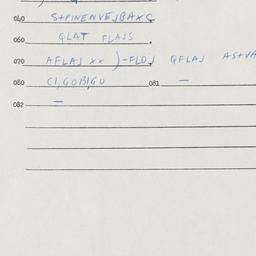 040 S+PINENVEJBAXC
060 QLAT FLAJS .
070 AFLAJ XX )-FLOJ QFLAJ AS+VA
080 CI,GOBIGU 081 —
082 —